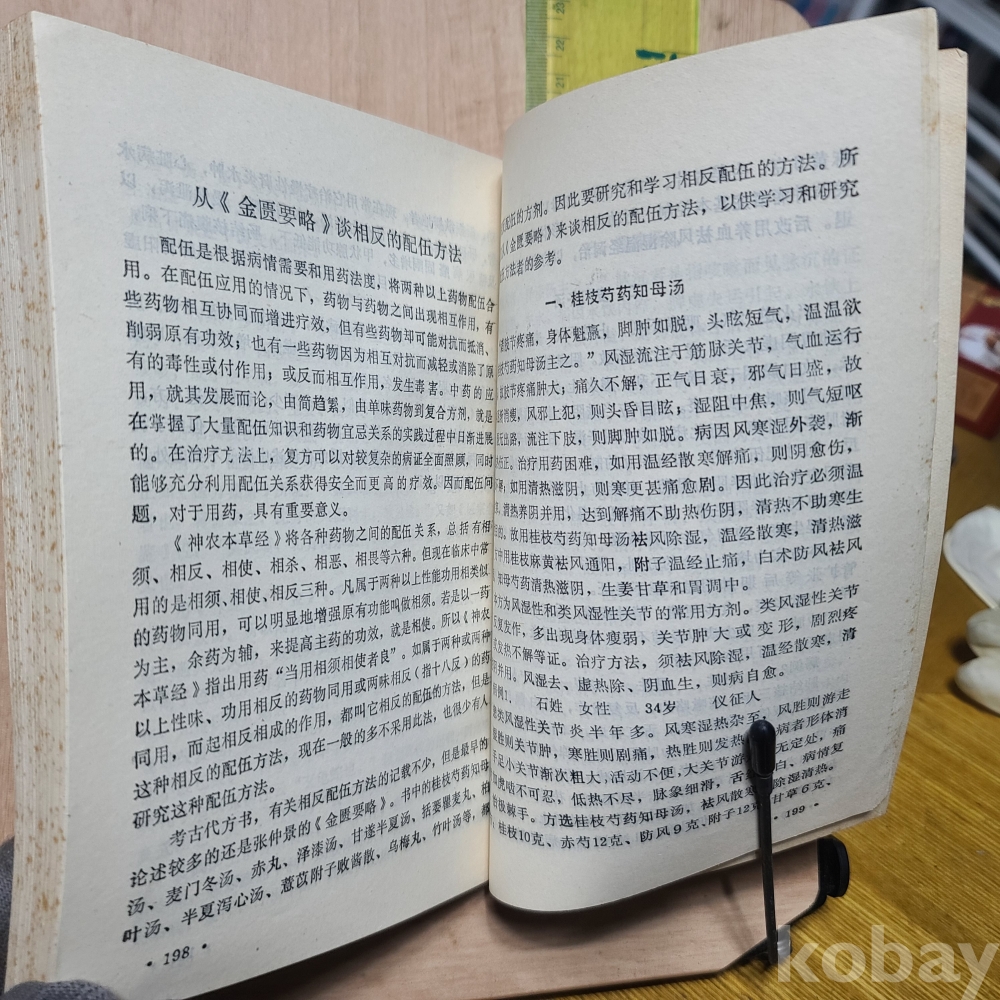 从《金匮要略》谈相反的配伍方法
配伍是根据病情需要和用药法度，将两种以上药物配伍合
用。在配伍应用的情况下，药物与药物之间出现相互作用，有
些药物相互协同而增进疗效，但有些药物却可能对抗而抵消、
削弱原有功效；也有一些药物因为相互对抗而减轻或消除了原
有的毒性或付作用；或反而相互作用，发生毒害。中药的应
用，就其发展而论，由简趋繁，由单味药物到复合方剂，就是
在掌握了大量配伍知识和药物宜忌关系的实践过程中日渐进展
的。在治疗方法上，复方可以对较复杂的病证全面照顾，同时
能够充分利用配伍关系获得安全而更高的疗效。因而配伍问
题，对于用药，具有重要意义。
《神农本草经》将各种药物之间的配伍关系，总括有相
须、相反、相使、相杀、相恶、相畏等六种。但现在临床中常
用的是相须、相使、相反三种。凡属于两种以上性能功用相类似
的药物同用，可以明显地增强原有功能叫做相须。若是以一药
为主，余药为辅，来提高主药的功效，就是相使。所以《神农
本草经》指出用药“当用相须相使者良”。如属于两种或两种
以上性味、功用相反的药物同用或两味相反（指十八反）的药
同用，而起相反相成的作用，都叫它相反的配伍方法，但是
这种相反的配伍方法，现在一般的多不采用此法，也很少有人
研究这种配伍方法。
考古代方书，有关相反配伍方法的记载不少，但是最早的
论述较多的还是张仲景的《金匮要略》。书中的桂枝芍药知母
汤、麦门冬汤、赤丸、泽漆汤、甘遂半夏汤、括蒌瞿麦丸、
叶汤、半夏泻心汤、薏苡附子败酱散、乌梅丸、竹叶汤等，
• 198 •
配伍的方剂。因此要研究和学习相反配伍的方法。所
《金匮要略》来谈相反的配伍方法，以供学习和研究
方法者的参考。
一、桂枝芍药知母汤
肢节疼痛，身体魁羸，脚肿如脱，头眩短气，温温欲
枝芍药知母汤主之。”风湿流注于筋脉关节，气血运行
肢节疼痛肿大；痛久不解，正气日衰，邪气日盛，故
消瘦，风邪上犯，则头昏目眩；湿阻中焦，则气短呕
出路，流注下肢，则脚肿如脱。病因风寒湿外袭，渐
正。治疗用药困难，如用温经散寒解痛，则阴愈伤，
；如用清热滋阴，则寒更甚痛愈剧。因此治疗必须温
清热养阴并用，达到解痛不助热伤阴，清热不助寒生
故用桂枝芍药知母汤祛风除湿，温经散寒，清热滋
中用桂枝麻黄祛风通阳，附子温经止痛，白术防风祛风
知母芍药清热滋阴，生姜甘草和胃调中。
方为风湿性和类风湿性关节的常用方剂。类风湿性关节
复发作，多出现身体瘦弱，关节肿大或变形，剧烈疼
发热不解等证。治疗方法，须祛风除湿，温经散寒，清
并用。风湿去、虚热除、阴血生，则病自愈。
例1. 石姓 女性 34岁 仪征人
类风湿性关节炎半年多。风寒湿热杂至，风胜则游走
胜则关节肿，寒胜则剧痛，热胜则发热 病者形体消
足小关节渐次粗大，活动不便，大关节游 无定处，痛
如虎啮不可忍，低热不尽，脉象细滑，舌 白、病情复
极棘手。方选桂枝芍药知母汤，祛风散寒 除湿清热。
桂枝10克、赤芍12克、防风9克、附子12克 甘草6克、
• 199 •
kobay